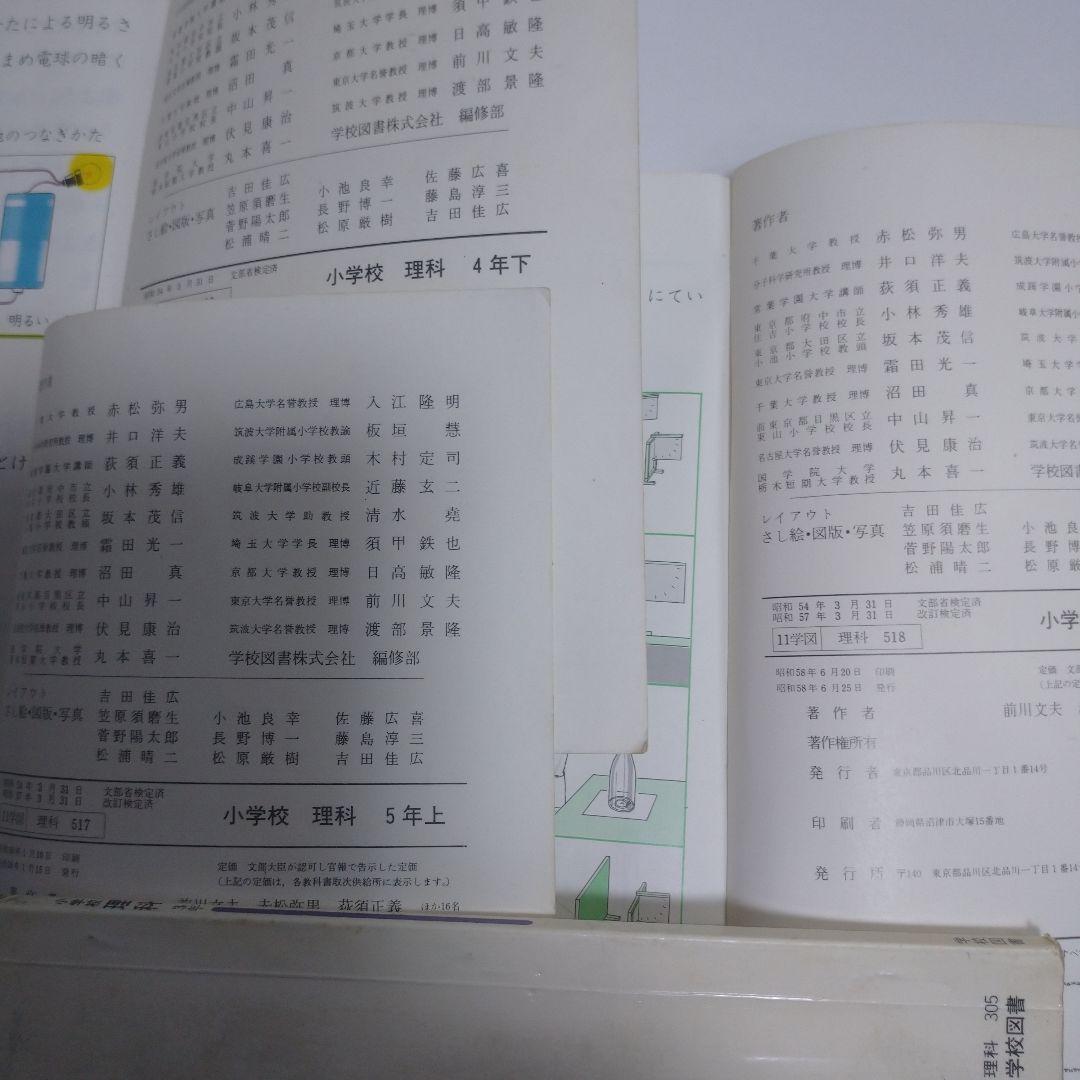 たによる明るさ
まめ電球の暗く
のつなぎかた
明るい
小林秀
坂本茂信
霜田光一
沼田 真
中山昇一
伏見康治
丸本喜一
埼玉大学学長 理博
京都大学教授 理博 日高敏隆
東京大学名誉教授 理博 前川文夫
筑波大学教授 理博 渡部景隆
学校図書株式会社 編修部
レイアウト
さし絵・図版・写真
吉田佳広
笠原須磨生 小池良幸 佐藤広喜
菅野陽太郎 長野博一 藤島淳三
松浦晴二 松原厳樹 吉田佳広
文部省検定済
小学校 理科 4年下
にてい
とけ
大学教授 赤松弥男 広島大学名誉教授 理博 入江隆明
教授 理博 井口洋夫 筑波大学附属小学校教諭 板垣 慧
大学講師 荻須正義 成蹊学園小学校教頭 木村定司
小林秀雄 岐阜大学附属小学校副校長 近藤玄二
坂本茂信 筑波大学助教授 清水 堯
理博 霜田光一 埼玉大学学長 理博 須甲鉄也
理博 沼田 真 京都大学教授 理博 日高敏隆
中山昇一 東京大学名誉教授 理博 前川文夫
理博 伏見康治 筑波大学名誉教授 理博 渡部景隆
丸本喜一 学校図書株式会社 編修部
レイアウト 吉田佳広
さし絵・図版・写真 笠原須磨生 小池良幸 佐藤広喜
菅野陽太郎 長野博一 藤島淳三
松浦晴二 松原厳樹 吉田佳広
54年3月31日 文部省検定済
57年3月31日 改訂検定済
11学図 理科 517
小学校 理科 5年上
1月10日 印刷
1月15日 発行
定価 文部大臣が認可し官報で告示した定価
(上記の定価は、各教科書取次供給所に表示します。)
赤松弥男 荻須正義 ほか16名
著作者
千葉大学教授 赤松弥男 広島大学名誉教授
分子科学研究所教授 理博 井口洋夫 筑波大学附属小
常葉学園大学講師 荻須正義 成蹊学園小学
東京都府中市立
住吉小学校校長 小林秀雄 岐阜大学附属小
東京都大田区立
小池小学校教頭 坂本茂信 筑波大学
東京大学名誉教授 理博 霜田光一 埼玉大学
千葉大学教授 理博 沼田 真 京都大学
前東京都目黒区立
東山小学校校長 中山昇一 東京大学名
名古屋大学名誉教授 理博 伏見康治 筑波大学名
国学院大学
栃木短期大学教授 丸本喜一 学校図書
レイアウト 吉田佳広
さし絵・図版・写真 笠原須磨生 小池良
菅野陽太郎 長野博
松浦晴二 松原厳
昭和54年3月31日 文部省検定済
昭和57年3月31日 改訂検定済
11学図 理科 518
小学
昭和58年6月20日 印刷
昭和58年6月25日 発行
定価 文
(上記の定
著作者 前川文夫
著作権所有
発行者 東京都品川区北品川一丁目1番14号
印刷者 静岡県沼津市大塚15番地
発行所 〒140 東京都品川区北品川一丁目1番14
学校図書
理科 305
学校図書